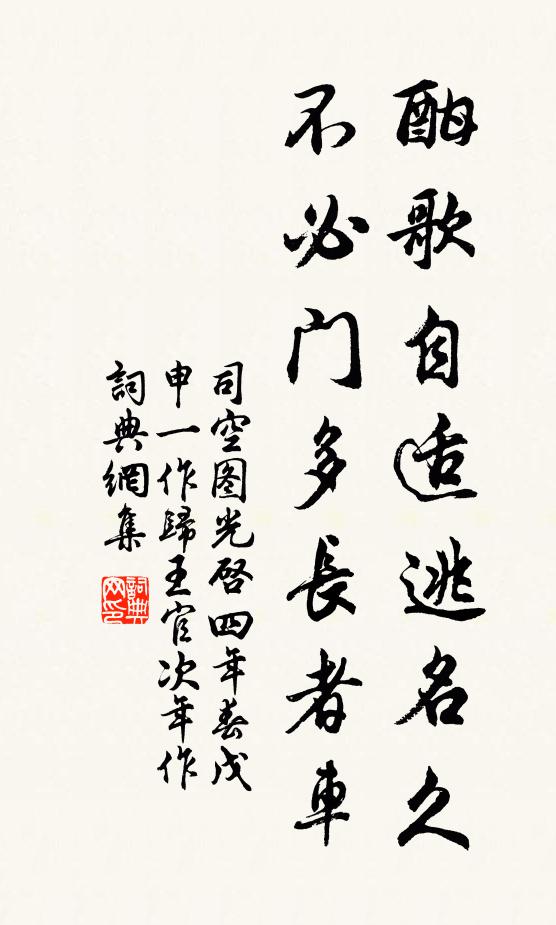 酣歌自适逃名久
不必门多長者車
司空图光啓四年春戊
申一作歸王官次年作
詞典網集
詞典
网印